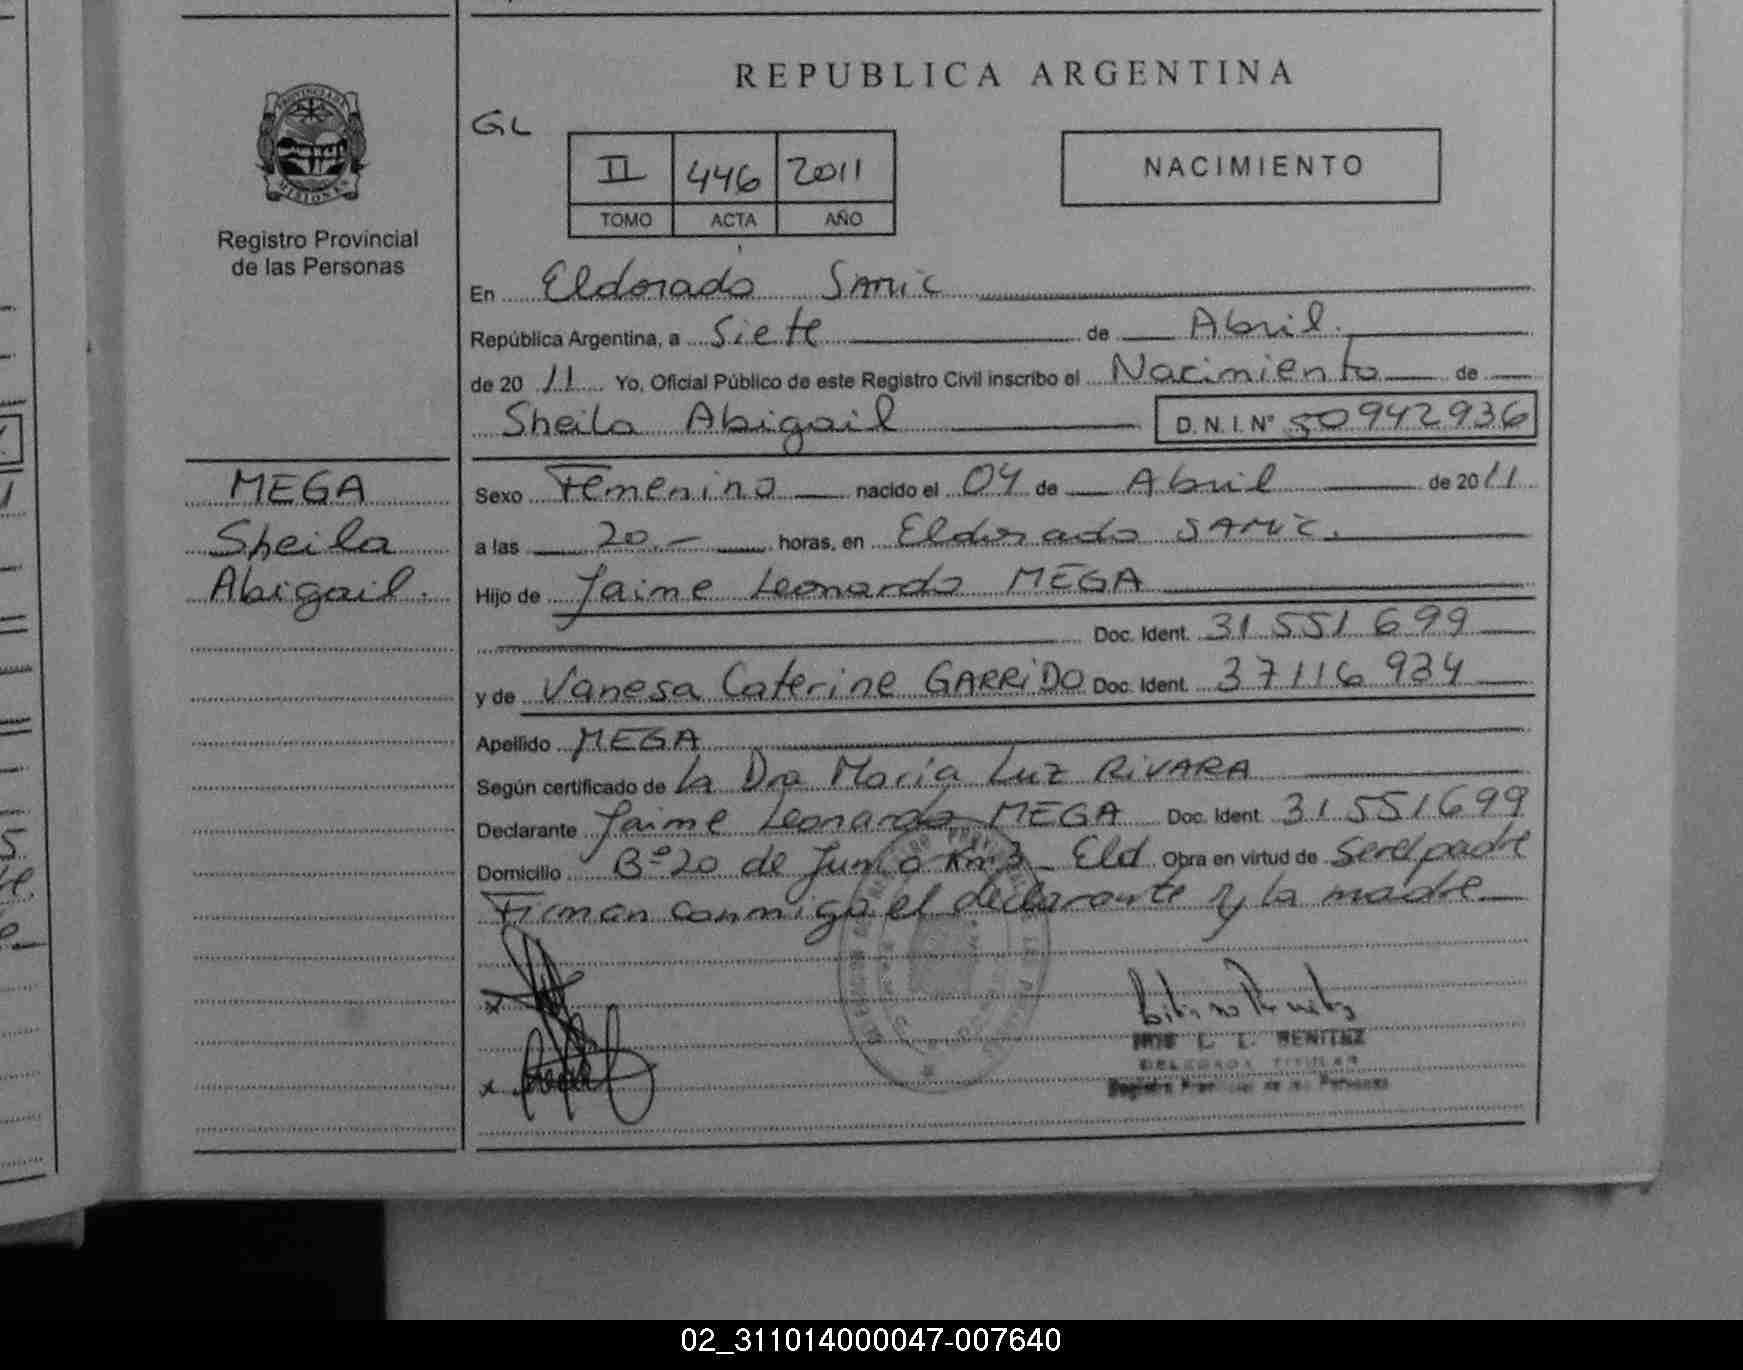 REPUBLICA ARGENTINA
PROVINCIA DE
MISIONES
Registro Provincial
de las Personas
GL
II 446 2011
TOMO ACTA AÑO
NACIMIENTO
En Eldorado SAMIC
República Argentina, a Siete de Abril.
de 2011 Yo, Oficial Público de este Registro Civil inscribo el Nacimiento de
Sheila Abigail D.N.I. N° 50942936
MEGA
Sheila
Abigail.
Sexo Femenino nacido el 04 de Abril de 2011
a las 20.- horas, en Eldorado SAMIC.
Hijo de Jaime Leonardo MEGA
Doc. Ident. 31551699
y de Vanesa Caterine GARRiDO Doc. Ident. 37116934
Apellido MEGA
Según certificado de la Dra Maria Luz RiVARA
Declarante Jaime Leonardo MEGA Doc. Ident. 31551699
Domicilio B° 20 de Junio Km 3 Eld Obra en virtud de ser el padre
Firman conmigo el declarante y la madre
x
x
L. L. BENITEZ
DELEGADA TITULAR
Registro Provincial de las Personas
02_311014000047-007640